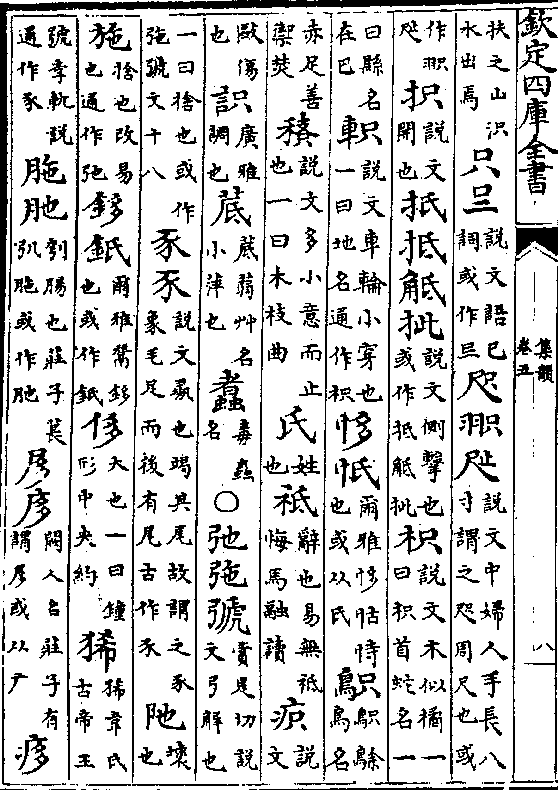 欽定四庫全書
集韻 卷五 八
扶之山汦水出焉 只𠮡 說文語已詞或作𠮡 咫䎶𡰨 說文中婦人手長八寸謂之咫周尺也或
作䎶咫 抧 說文開也 抵扺觝批 說文側擊也或作抵觝批 枳 說文木似橘一曰枳首蛇名一
曰縣名在巴 軹 說文車輪小穿也一曰地名通作枳 恀忯 爾雅恀怙恃也或以氏 䳅 䳅䳕鳥名
赤足善禦焚 𥠻 說文多小意而止也一曰木枝曲 氏 姓也 祇 辭也易無祇悔馬融讀 疻 說文
敺傷也 䛊 廣雅調也 茋 茋蒻艸名小萍也 蠚 毒蟲名 ○ 弛㢮𢐋 賞是切說文弓解也
一曰捨也或作㢮𢐋文十八 豕𧰧 說文彘也竭其尾故謂之豕象毛足而後有尾古作𧰧 阤 壞也
施 捨也改易也通作弛 鉹䤠 爾雅鬵鉹也或作䤠 侈 大也一曰鐘形中央約 狶 狶韋氏古帝王
號李軌說通作豕 胣肔 刳腸也莊子萇弘胣或作肔 闕人名莊子有謂或以广